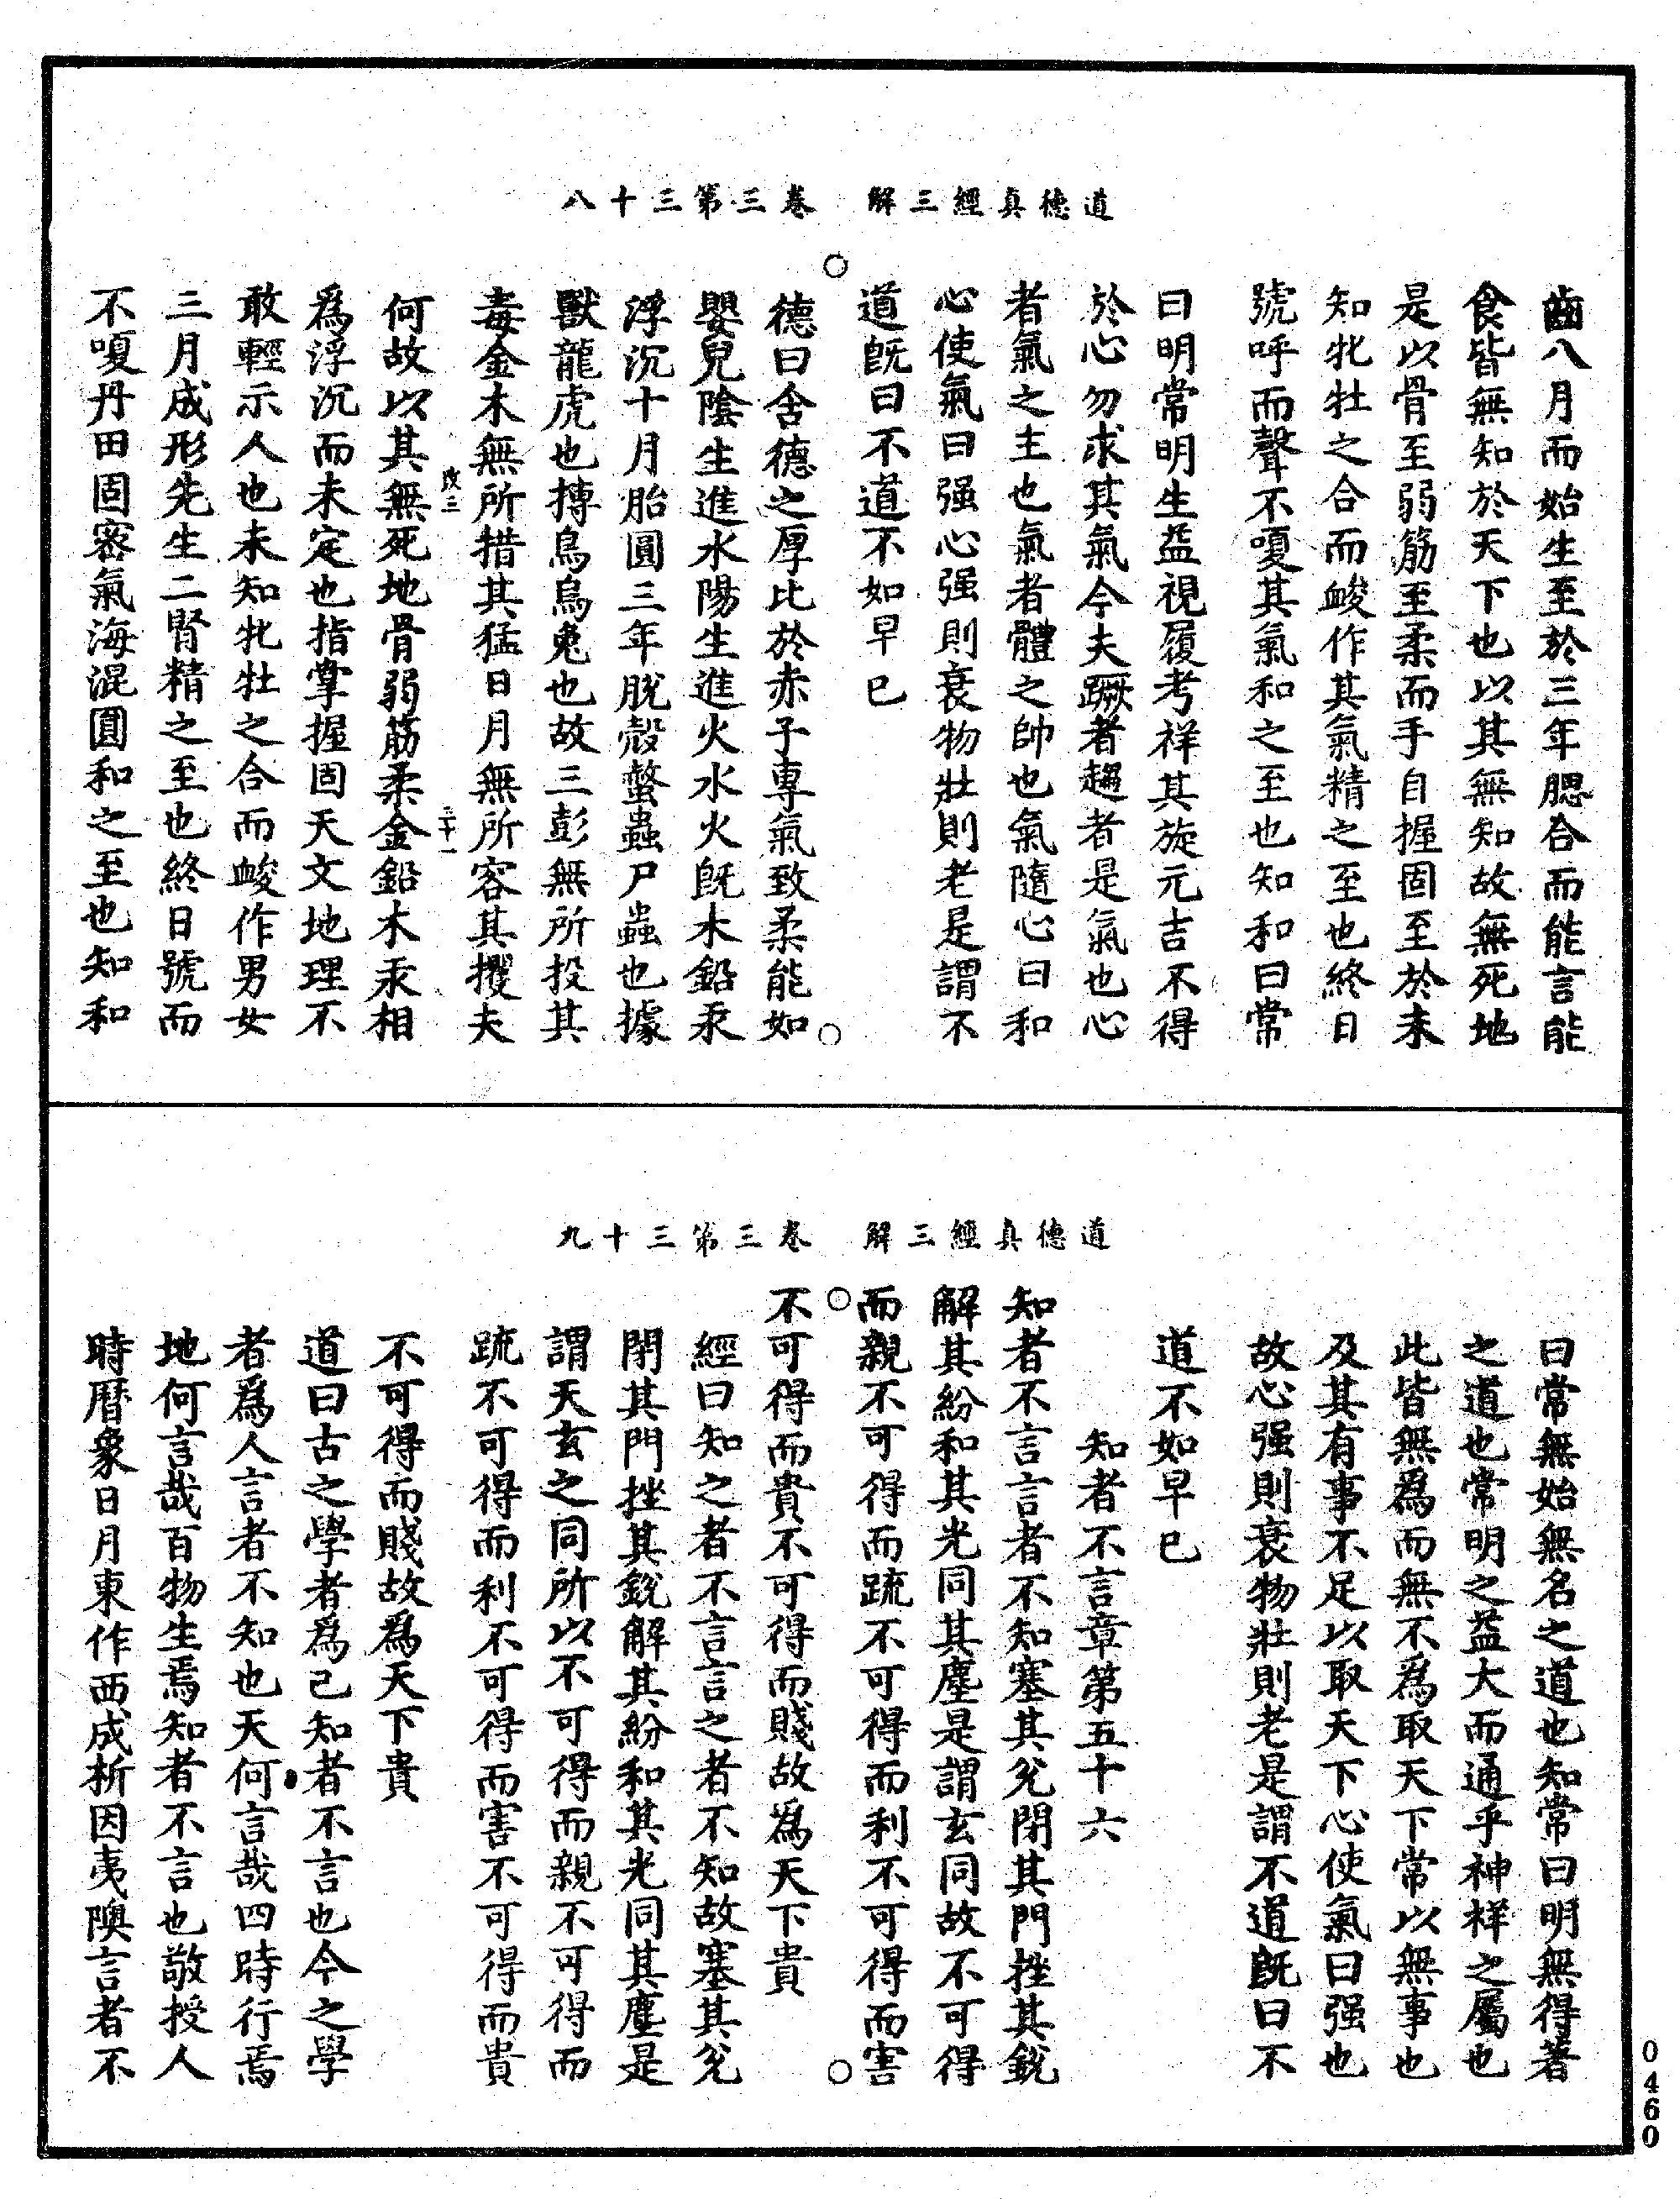 道德真經三解　卷三第三十八
齒八月而始生至於三年腮合而能言能
食皆無知於天下也以其無知故無死地
是以骨至弱筋至柔而手自握固至於未
知牝牡之合而峻作其氣精之至也終日
號呼而聲不嗄其氣和之至也知和曰常
曰明常明生益視履考祥其旋元吉不得
於心勿求其氣今夫蹶者趨者是氣也心
者氣之主也氣者體之帥也氣隨心曰和
心使氣曰强心强則衰物壯則老是謂不
道旣曰不道不如早已
德曰含德之厚比於赤子專氣致柔能如
嬰兒陰生進水陽生進火水火旣木鉛汞
浮沉十月胎圓三年脫殼螫蟲尸蟲也據
獸龍虎也摶鳥烏兔也故三彭無所投其
毒金木無所措其猛日月無所容其攫夫
何故以其無死地骨弱筋柔金鉛木汞相
爲浮沉而未定也指掌握固天文地理不
敢輕示人也未知牝牡之合而峻作男女
三月成形先生二腎精之至也終日號而
不嗄丹田固密氣海混圓和之至也知和
道德真經三解　卷三第三十九
曰常無始無名之道也知常曰明無得著
之道也常明之益大而通乎神祥之屬也
此皆無爲而無不爲取天下常以無事也
及其有事不足以取天下心使氣曰强也
故心强則衰物壯則老是謂不道旣曰不
道不如早已
知者不言章第五十六
知者不言言者不知塞其兌閉其門挫其銳
解其紛和其光同其塵是謂玄同故不可得
而親不可得而疏不可得而利不可得而害
不可得而貴不可得而賤故爲天下貴
經曰知之者不言言之者不知故塞其兌
閉其門挫其銳解其紛和其光同其塵是
謂天玄之同所以不可得而親不可得而
疏不可得而利不可得而害不可得而貴
不可得而賤故爲天下貴
道曰古之學者爲己知者不言也今之學
者爲人言者不知也天何言哉四時行焉
地何言哉百物生焉知者不言也敬授人
時曆象日月東作西成析因夷隩言者不
0460